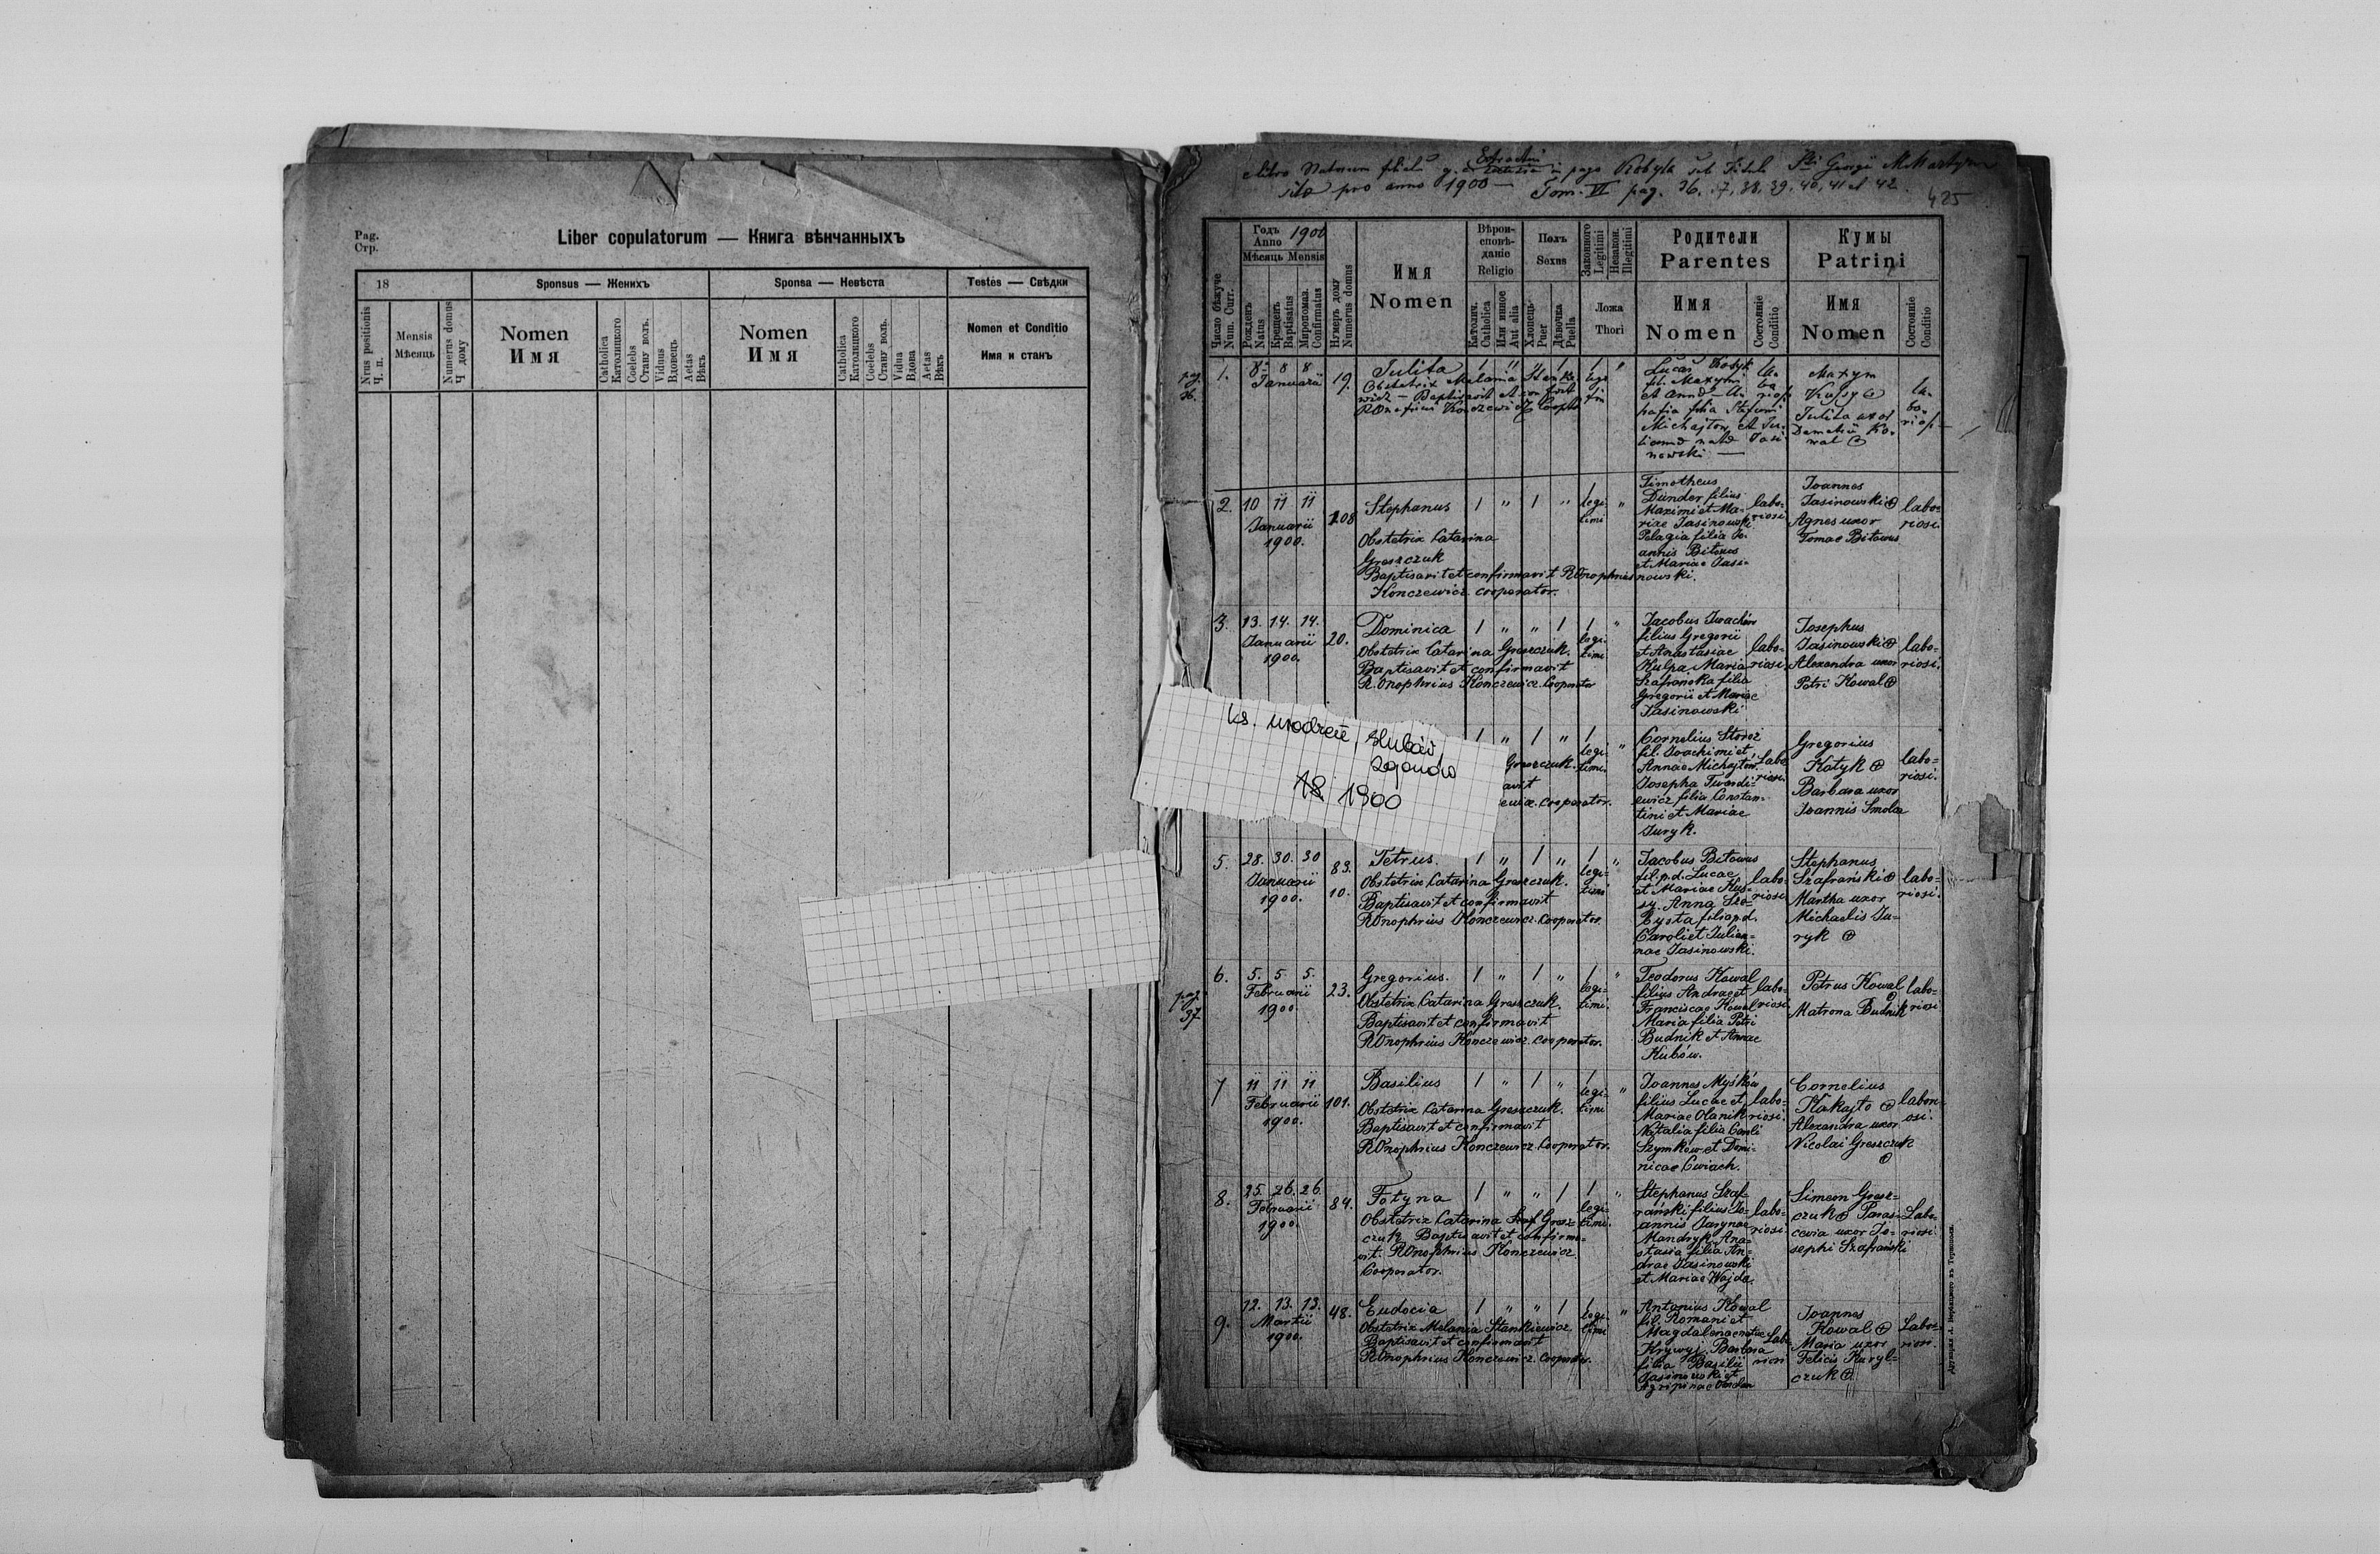 Pag.
Стр.
Liber copulatorum — Книга вѣнчанныхъ
18
Sponsus — Женихъ
Sponsa — Невѣста
Testes — Свѣдки
Nrus positionis
Ч. п.
Mensis
Мѣсяцъ
Numerus domus
Ч дому
Nomen
Имя
Catholica
Католицкого
Coelebs
Стану вол.
Viduus
Вдовецъ
Aetas
Вѣкъ
Nomen
Имя
Catholica
Католицкого
Coelebs
Стану воль.
Vidua
Вдова
Aetas
Вѣкъ
Nomen et Conditio
Имя и станъ
pro anno 1900 — Tom. VI pag. 36. 37, 38, 39, 40, 41 et 42.
425
Число бѣжуче
Num. Curr.
Годъ
Anno 1900
Мѣсяцъ Mensis
Рожденъ
Natus
Крещенъ
Baptisatus
Миропомаз.
Confirmatus
Нумеръ дому
Numerus domus
Имя
Nomen
Вѣрои-
сповѣ-
даніе
Religio
Католич.
Catholica
Или инное
Aut alia
Полъ
Sexus
Хлопецъ
Puer
Дѣвочка
Puella
Законного
Legitimi
Незакон.
Illegitimi
Ложа
Thori
Родители
Parentes
Имя
Nomen
Состояніе
Conditio
Кумы
Patrini
Имя
Nomen
Состояніе
Conditio
pag.
36.
1. 8 8 8
Januarii
19.
Julita
Obstetrix Melania Stankie
wicz — Baptisavit et confirm
fil. Maxymi
et Anna
Michajlow et Ju-
nowski —
Maxym
Kussy
Julita uxor
Demetrii Ko-
wal
2. 10 11 11
Januarii
1900.
108
Stephanus
Obstetrix Catarina
Greszczuk
Baptisavit et confirmavit R Onophrius
Konczewicz cooperator.
legi
timi
Timotheus
Dunder filius
Maximi et Ma-
riae Jasinowski.
Pelagia filia Jo-
annis Bitowus
et Mariae Jasi-
nowski.
labo-
riosi
Joannes
Jasinowski
Agnes uxor
Tomae Bitowus
labo-
riosi.
3. 13. 14. 14.
Januarii
1900.
20.
Dominica
Obstetrix Catarina Greszczuk.
Baptisavit et confirmavit
R. Onophrius Konczewicz. Cooperator
legi-
timi
Jacobus Iwachów
filius Gregorii
et Anastasiae
Kulpa, Maria
Szafrańska filia
Gregorii et Mariae
Jasinowski
labo-
riosi
Josephus
Jasinowski
Alexandra uxor
Petri Kowal
labo-
riosi.
ks. urodzeń, ślubów,
zgonów
18 1900
Greszczuk.
avit
ewicz. cooperator.
legi-
timi.
Cornelius Storoz
fil. Joachimi et
Annae Michajłów.
Josepha Twardi-
ewicz filia Constan-
tini et Mariae
Juryk.
labo-
riosi.
Gregorius
Kotyk
Barbara uxor
Joannis Smolar
labo-
riosi.
5. 28. 30. 30
Januarii
1900.
83.
10.
Petrus.
Obstetrix Catarina Greszczuk.
Baptisavit et confirmavit
R Onophrius Konczewicz. Cooperator
legi-
timi
Jacobus Bitowus
fil. p. d. Lucae
et Mariae Kus-
sy. Anna
filia p. d.
Caroli et Julian-
nae Jasinowski.
labo-
riosi
Stephanus
Szafrański
Martha uxor
Michaelis Ju-
ryk
labo-
riosi.
pag.
37
6. 5. 5. 5.
Februarii
1900.
23.
Gregorius.
Obstetrix Catarina Greszczuk.
Baptisavit et confirmavit
R Onophrius Konczewicz. cooperator.
legi-
timi.
Teodorus Kowal
filius Andrae et
Franciscae Kowal
Maria filia Petri
Budnik et Annae
Kubów.
labo-
riosi.
Petrus Kowal
Matrona Budnik
labo-
riosi
7 11 11 11
Februarii
1900.
101.
Basilius
Obstetrix Catarina Greszczuk.
Baptisavit et confirmavit
R Onophrius Konczewicz. Cooperator.
legi-
timi
Joannes Myśków
filius Lucae et
Mariae Olanik
Natalia filia Caroli
Szymków et Domi-
nicae Cwiach.
labo-
riosi.
Cornelius
Kakajto
Alexandra uxor
Nicolai Greszczuk
labori-
osi.
8. 25. 26. 26.
Februarii
1900.
84.
Fotyna
Obstetrix Catarina Gresz-
czuk Baptisavit et confirma-
vit. R Onophrius Konczewicz
Cooperator.
legi-
timi.
Stephanus Szaf-
rański filius Jo-
annis Jarynae
Mandryk, Ana-
stasia filia An-
drae Jasinowski
et Mariae Wajda.
labo-
riosi.
Simeon Gresz-
czuk Paras-
cevia uxor Jo-
sephi Szafrański
Labo-
riosi.
9. 12. 13. 13.
Martii
1900.
48.
Eudocia
Obstetrix Melania Stankiewicz.
Baptisavit et confirmavit
R Onophrius Konczewicz. Cooperator.
legi-
timi
Antonius Kowal
fil. Romani et
Magdalenae natae
Krywyj. Barbara
filia Basilii
Jasinowski et
Agripinae
Labo-
riosi
Joannes
Kowal
Maria uxor
Felicis Kuryl-
czuk
Labo-
riosi.